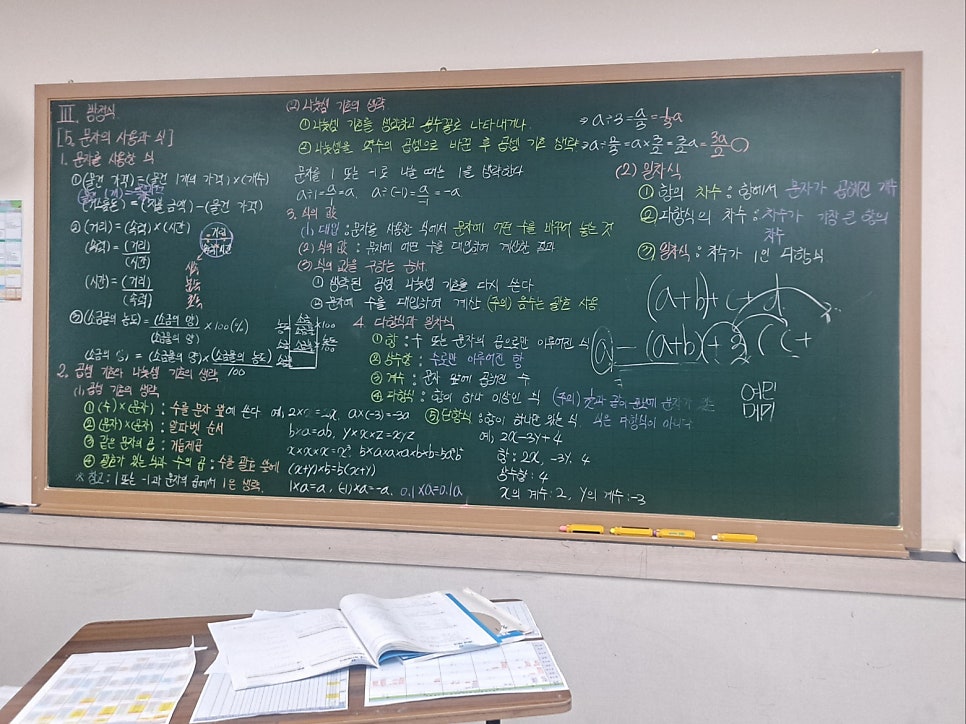 III. 방정식
[5. 문자의 사용과 식]
1. 문자를 사용한 식
①(물건 가격)=(물건 1개의 가격)×(개수)
(거스름돈)=(지불 금액)-(물건 가격)
②(거리)=(속력)×(시간)
(속력)=(거리)/(시간)
(시간)=(거리)/(속력)
거리
속력 시간
③(소금물의 농도)=(소금의 양)/(소금물의 양)×100(%)
(소금의 양)=(소금물의 양)×(소금물의 농도)/100
2. 곱셈 기호와 나눗셈 기호의 생략
(1) 곱셈 기호의 생략
①(수)×(문자) : 수를 문자 앞에 쓴다 예) 2×x=2x, a×(-3)=-3a
②(문자)×(문자) : 알파벳 순서 b×a=ab, y×x×z=xyz
③같은 문자의 곱 : 거듭제곱 x×x×x=x³, 5×a×a×b×b=5a²b²
④괄호가 있는 식과 수의 곱 : 수를 괄호 앞에 (x+y)×5=5(x+y)
※참고 : 1 또는 -1과 문자의 곱에서 1은 생략. 1×a=a, (-1)×a=-a, 0.1×a=0.1a
(2) 나눗셈 기호의 생략
①나눗셈 기호를 생략하고 분수꼴로 나타내거나 ⇒ a÷3=a/3=1/3a
②나눗셈을 역수의 곱셈으로 바꾼 후 곱셈 기호 생략 ⇒ a÷2/3=a×3/2=3/2a=3a/2
문자를 1 또는 -1로 나눌 때는 1을 생략한다
a÷1=a/1=a, a÷(-1)=a/-1=-a
3. 식의 값
(1) 대입 : 문자를 사용한 식에서 문자에 어떤 수를 바꾸어 놓는 것
(2) 식의 값 : 문자에 어떤 수를 대입하여 계산한 결과
(3) 식의 값을 구하는 순서
① 생략된 곱셈 나눗셈 기호를 다시 쓴다
② 문자에 수를 대입하여 계산 (주의) 음수는 괄호 사용
4. 다항식과 일차식
①항 : 수 또는 문자의 곱으로만 이루어진 식
②상수항 : 수로만 이루어진 항
③계수 : 문자 앞에 곱해진 수
④다항식 : 항이 하나 이상인 식 (주의)
⑤단항식 : 항이 하나만 있는 식 식은 다항식이 아니다
예) 2x-3y+4
항 : 2x, -3y, 4
상수항 : 4
x의 계수 : 2, y의 계수 : -3
(2) 일차식
①항의 차수 : 항에서 문자가 곱해진 개수
②다항식의 차수 : 차수가 가장 큰 항의 차수
③일차식 : 차수가 1인 다항식
(a+b)+c+d
a-(a+b)(+2(c+